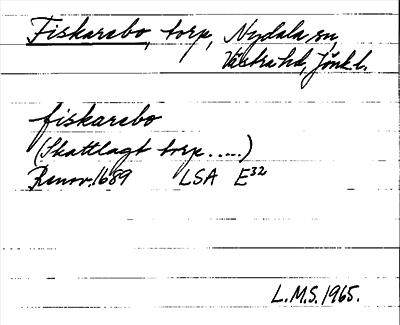 Fiskarebo, torp, Nydala sn,
Västra hd, Jönk.l.
fiskarebo
(Skattlagt torp.....)
Renov. 1689 LSA E32
L.M.S. 1965.